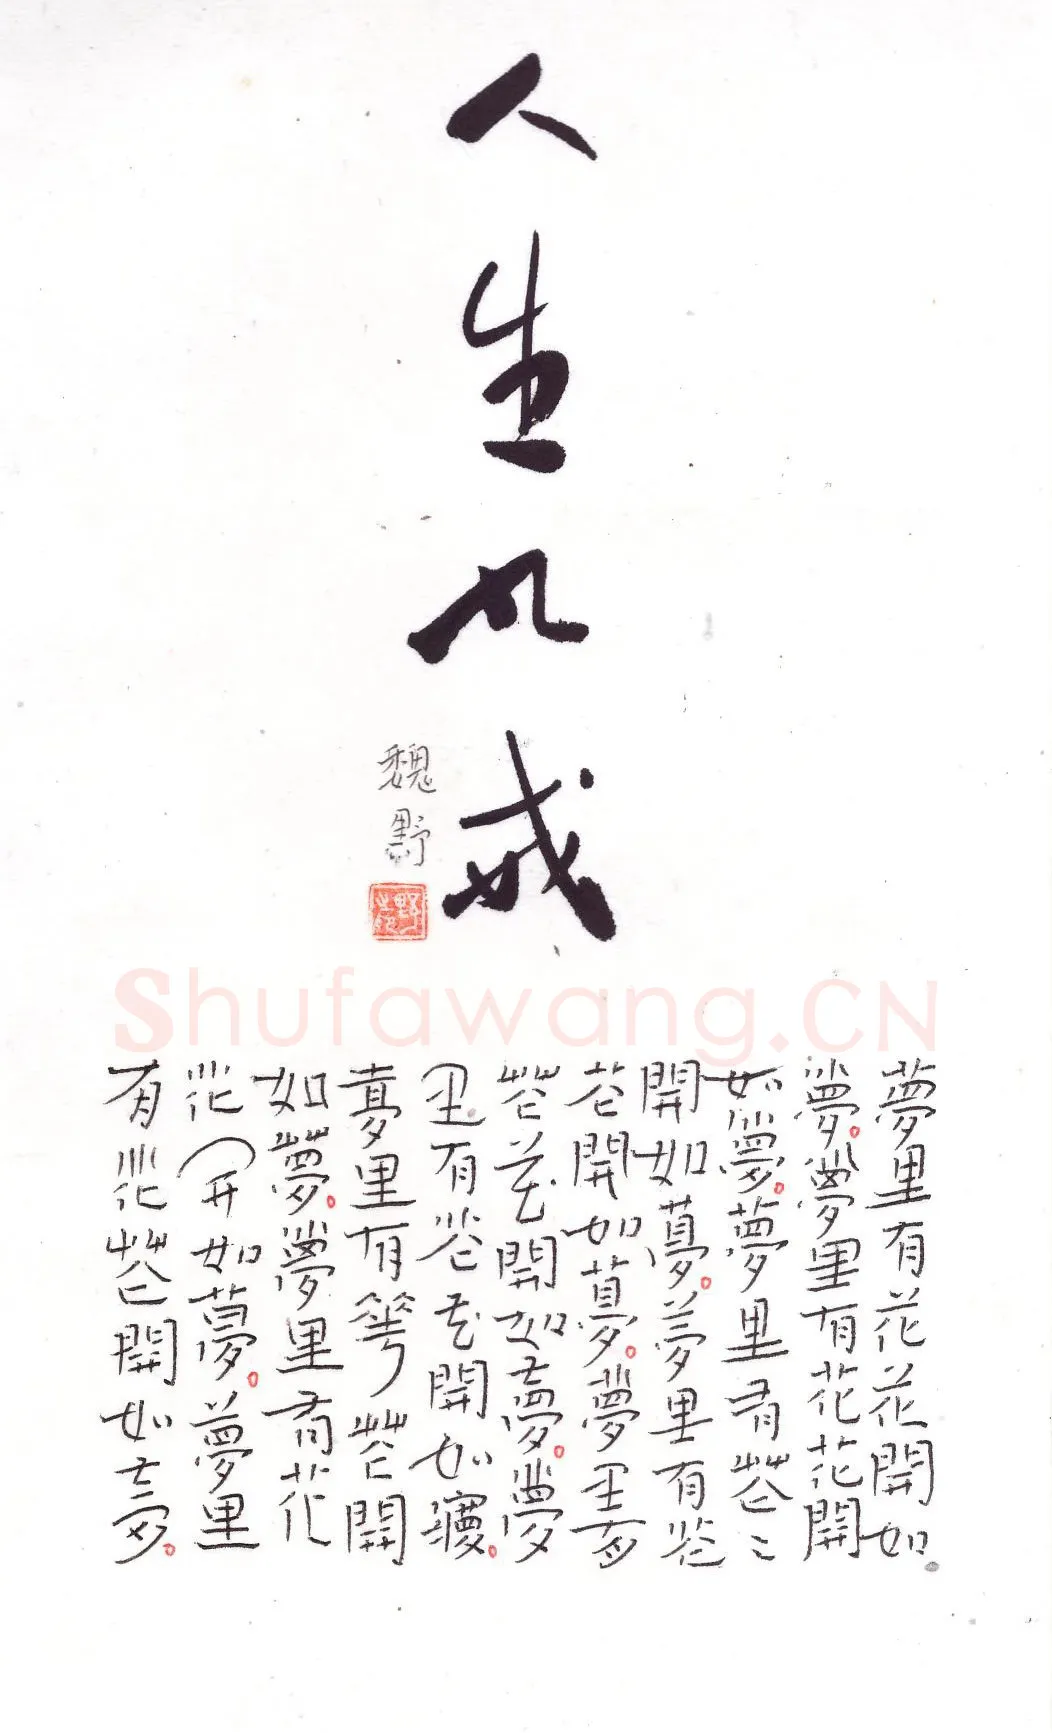 人生如戏
魏野
夢里有花花開如
夢。夢里有花花開
如夢。夢里有花〻
開如夢。夢里有花
花開如夢。夢里有
花花開如夢。夢
里有花花開如夢。
夢里有華花開
如夢。夢里有花
花開如夢。夢里
有花花開如夢。
Shufawang.CN